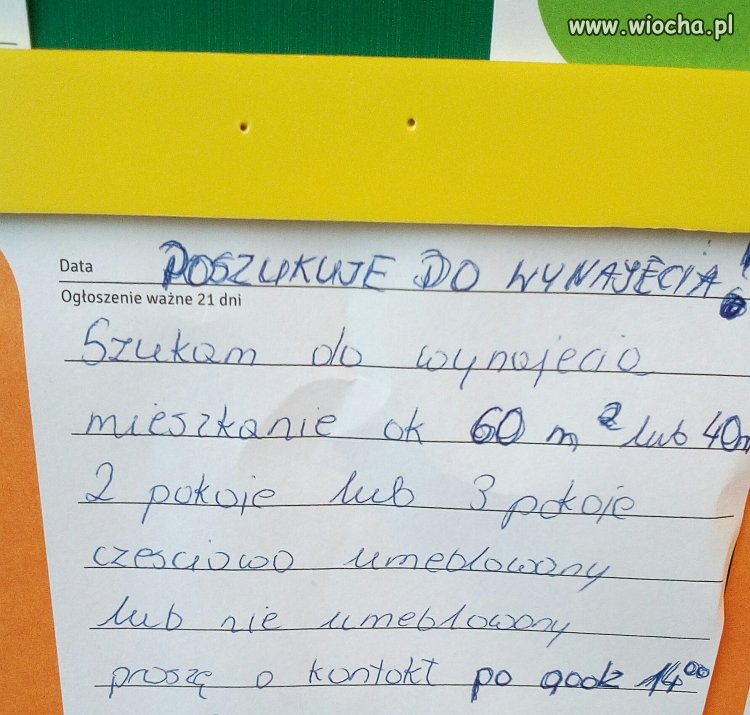 www.wiocha.pl
Data POSZUKUJE DO WYNAJĘCIA!
Ogłoszenie ważne 21 dni
Szukam do wynajecia
mieszkanie ok 60 m² lub 40m
2 pokoje lub 3 pokoje
czesciowo umeblowany
lub nie umeblowany
proszę o kontakt po godz 14⁰⁰